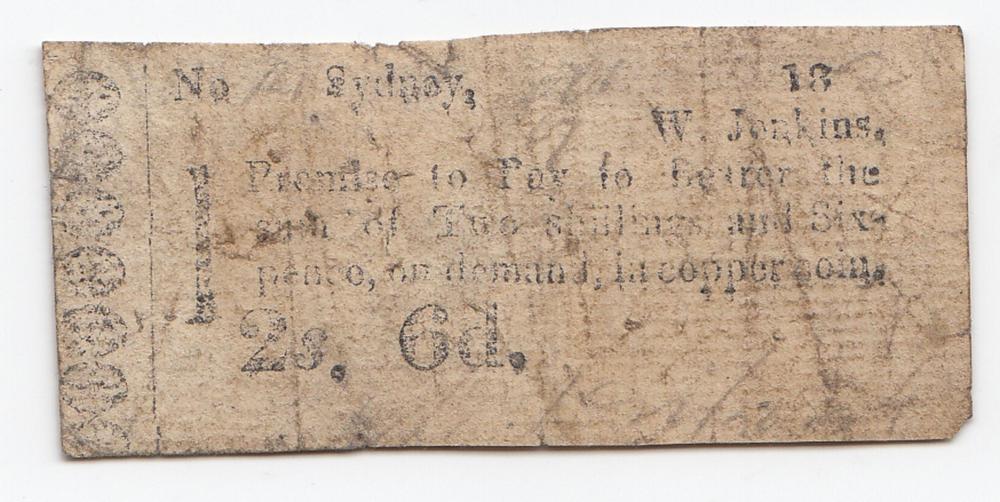 No Sydney, 18
W. Jenkins,
I Promise to Pay to Bearer the
sum of Two shillings and Six-
pence, on demand, in copper coin.
2s. 6d.